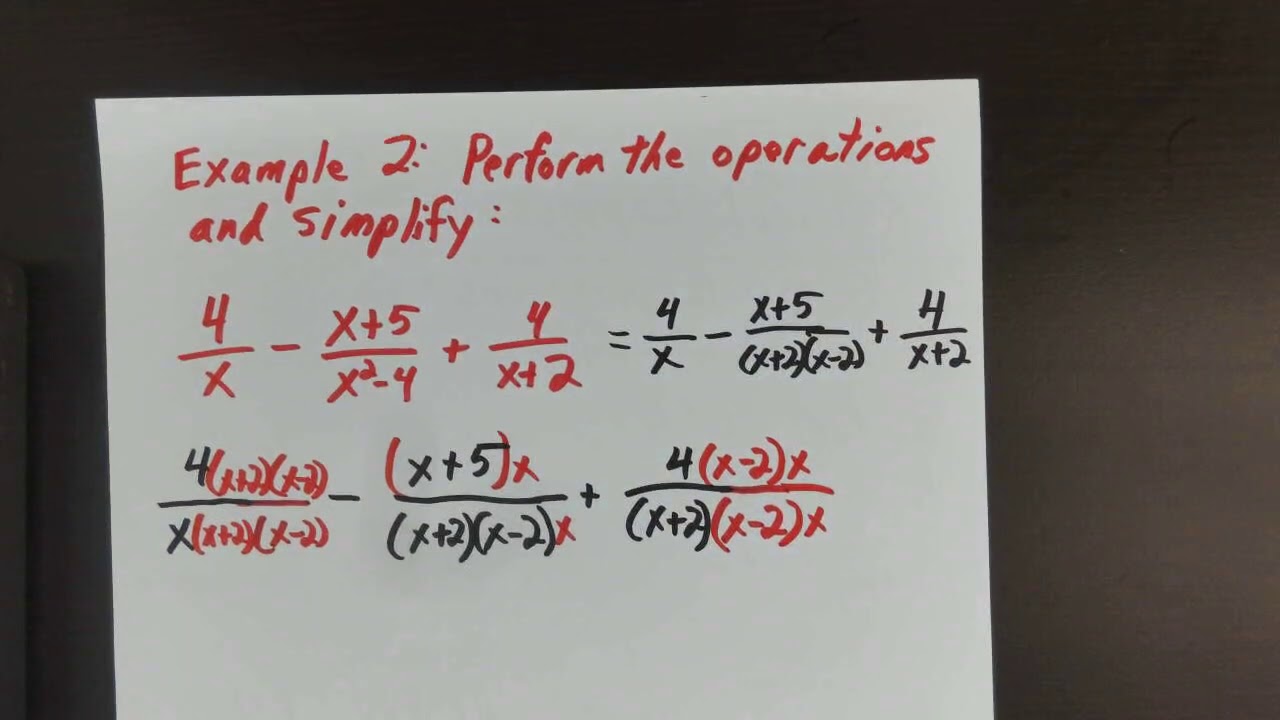 Example 2: Perform the operations
and simplify:
4/x - (x+5)/(x²-4) + 4/(x+2) = 4/x - (x+5)/((x+2)(x-2)) + 4/(x+2)
4(x+2)(x-2)/(x(x+2)(x-2)) - (x+5)x/((x+2)(x-2)x) + 4(x-2)x/((x+2)(x-2)x)